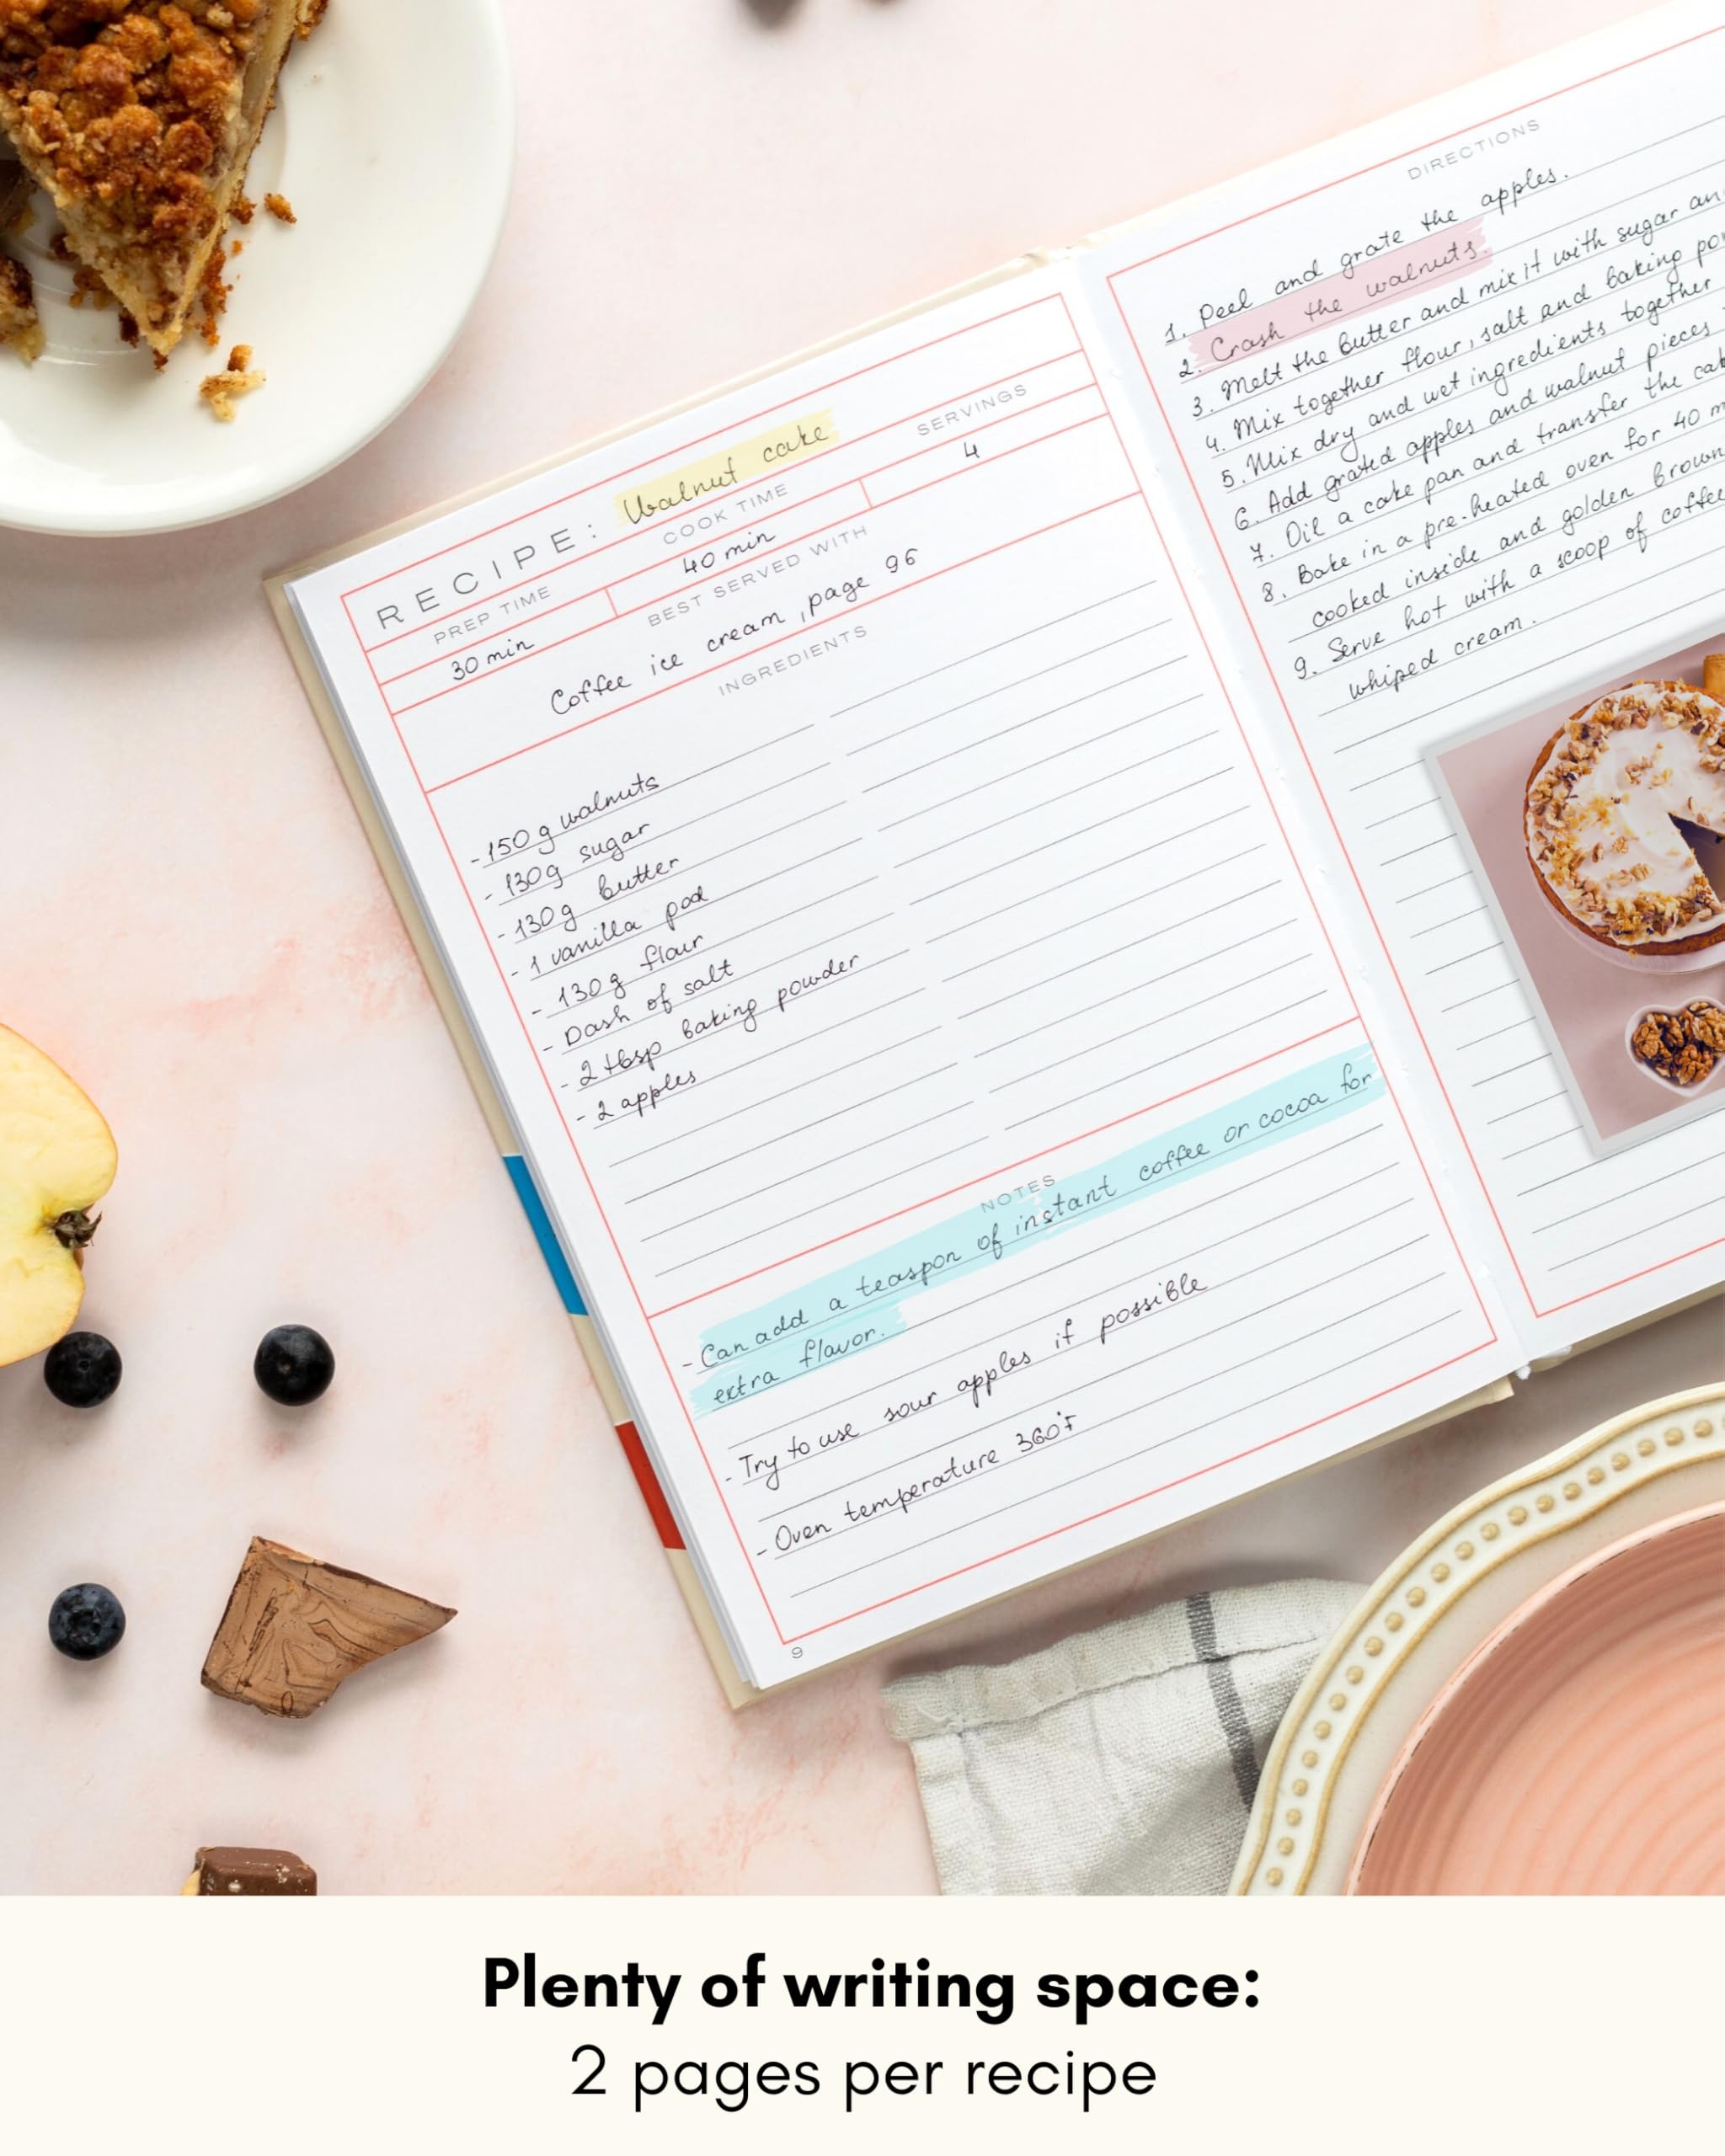 RECIPE: Walnut cake
PREP TIME COOK TIME SERVINGS
30 min 40 min 4
BEST SERVED WITH
Coffee ice cream, page 96
INGREDIENTS
- 150 g walnuts
- 130g sugar
- 130g butter
- 1 vanilla pod
- 130g flour
- Dash of salt
- 2 tbsp baking powder
- 2 apples
NOTES
- Can add a teaspon of instant coffee or cocoa for
extra flavor.
- Try to use sour apples if possible
- Oven temperature 360°F
9
DIRECTIONS
1. Peel and grate the apples.
2. Crash the walnuts.
3. Melt the butter and mix it with sugar
4. Mix together flour, salt and baking
5. Mix dry and wet ingredients together
6. Add grated apples and walnut pieces
7. Oil a cake pan and transfer the
8. Bake in a pre-heated oven for 40
cooked inside and golden brown
9. Serve hot with a scoop of coffee
whiped cream.
Plenty of writing space:
2 pages per recipe